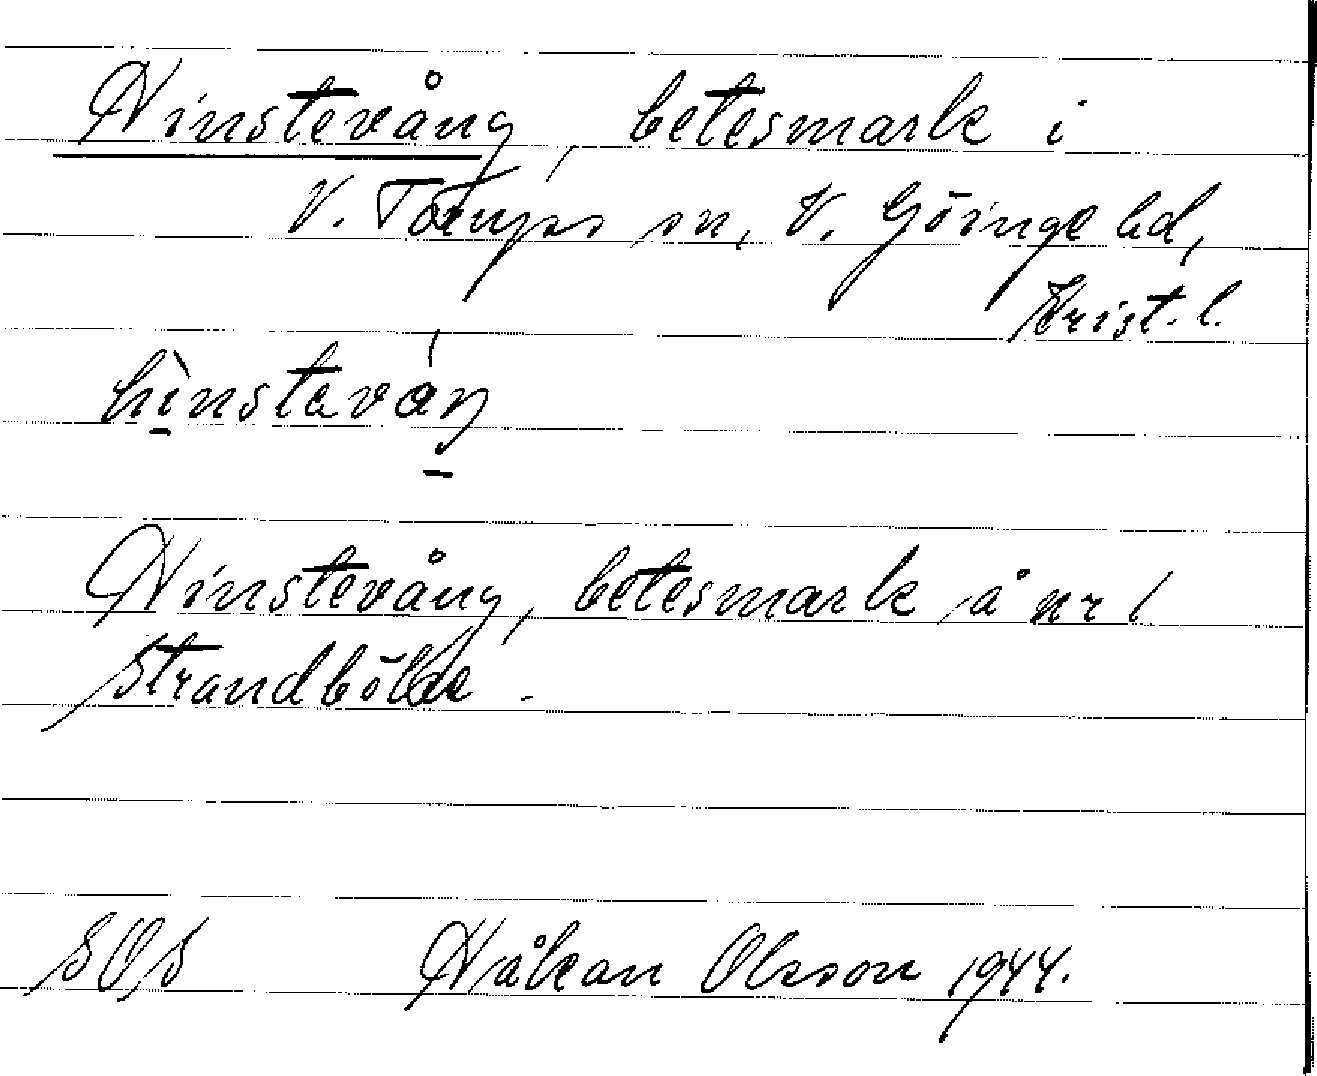 Hinstevång, betesmark i
V. Torups sn, V. Göinge hd,
Krist. l.
hìnstaváŋ
Hinstevång, betesmark å nr 1
Strandbölde.
SOS Håkan Olsson 1944.